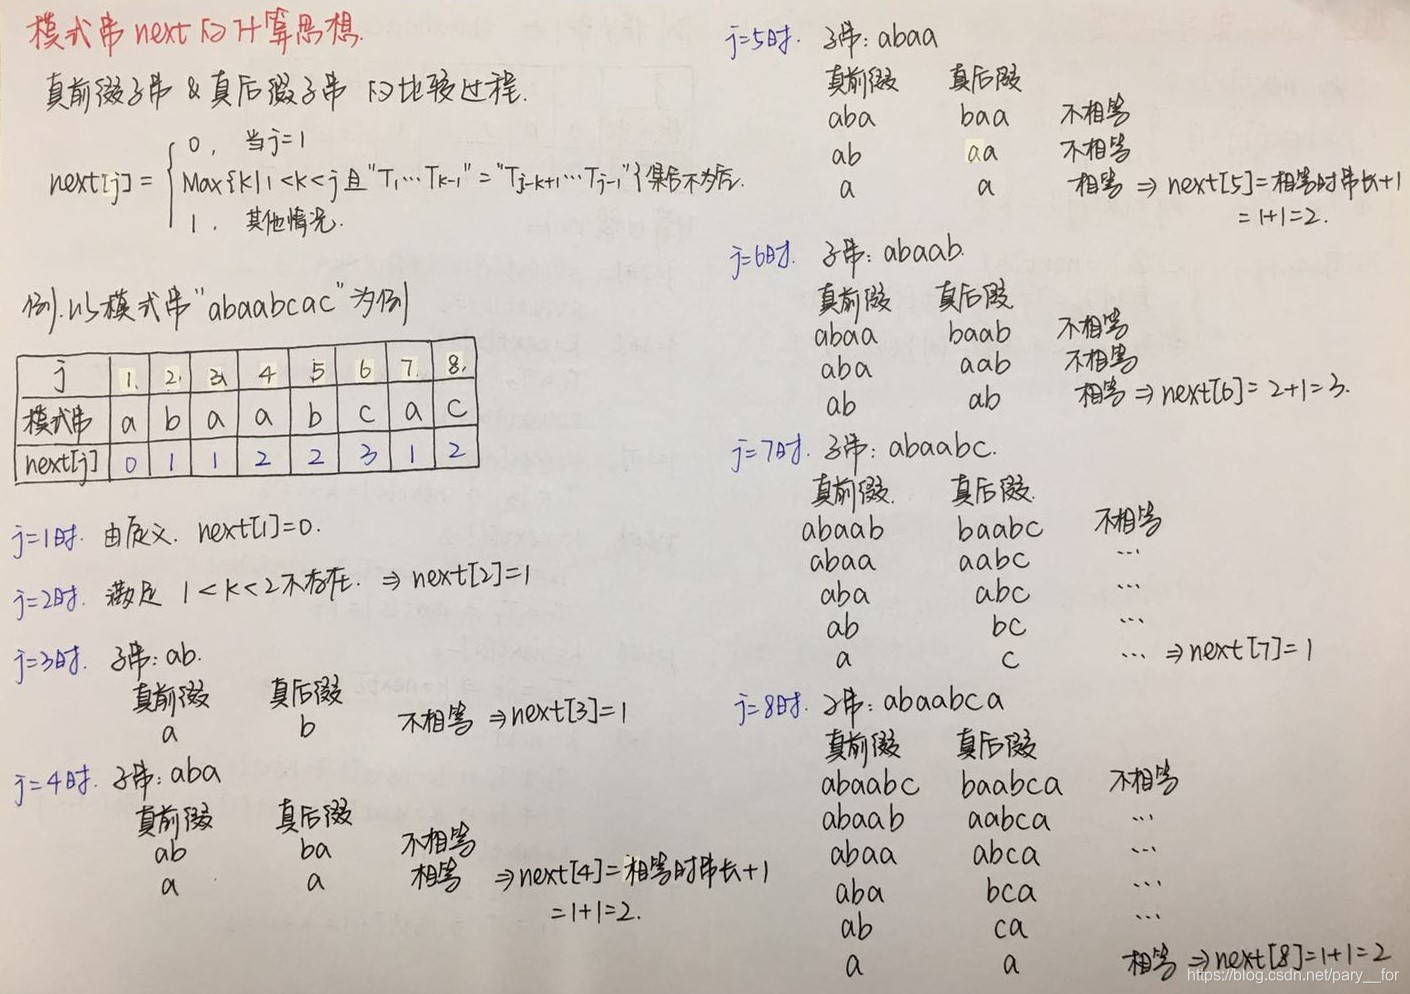 模式串next的计算思想.
真前缀子串 & 真后缀子串 的比较过程.
next[j] = { 0, 当j=1
Max{k|1<k<j 且 "T₁…Tk-1" = "Tj-k+1…Tj-1"} 集合不为空.
1. 其他情况.
例.以模式串"abaabcac"为例
j 1. 2. 3. 4 5 6 7. 8.
模式串 a b a a b c a c
next[j] 0 1 1 2 2 3 1 2
j=1时. 由定义. next[1]=0.
j=2时. 满足 1<k<2不存在. ⇒ next[2]=1
j=3时. 子串:ab.
真前缀 真后缀
a b 不相等 ⇒next[3]=1
j=4时. 子串:aba
真前缀 真后缀
ab ba 不相等
a a 相等 ⇒next[4]=相等时串长+1
=1+1=2.
j=5时. 子串:abaa
真前缀 真后缀
aba baa 不相等
ab aa 不相等
a a 相等 ⇒next[5]=相等时串长+1
=1+1=2.
j=6时. 子串:abaab.
真前缀 真后缀
abaa baab 不相等
aba aab 不相等
ab ab 相等 ⇒next[6]=2+1=3.
j=7时. 子串:abaabc.
真前缀. 真后缀.
abaab baabc 不相等
abaa aabc …
aba abc …
ab bc …
a c … ⇒next[7]=1
j=8时. 子串:abaabca
真前缀 真后缀
abaabc baabca 不相等
abaab aabca …
abaa abca …
aba bca …
ab ca …
a a 相等 ⇒next[8]=1+1=2
https://blog.csdn.net/pary__for